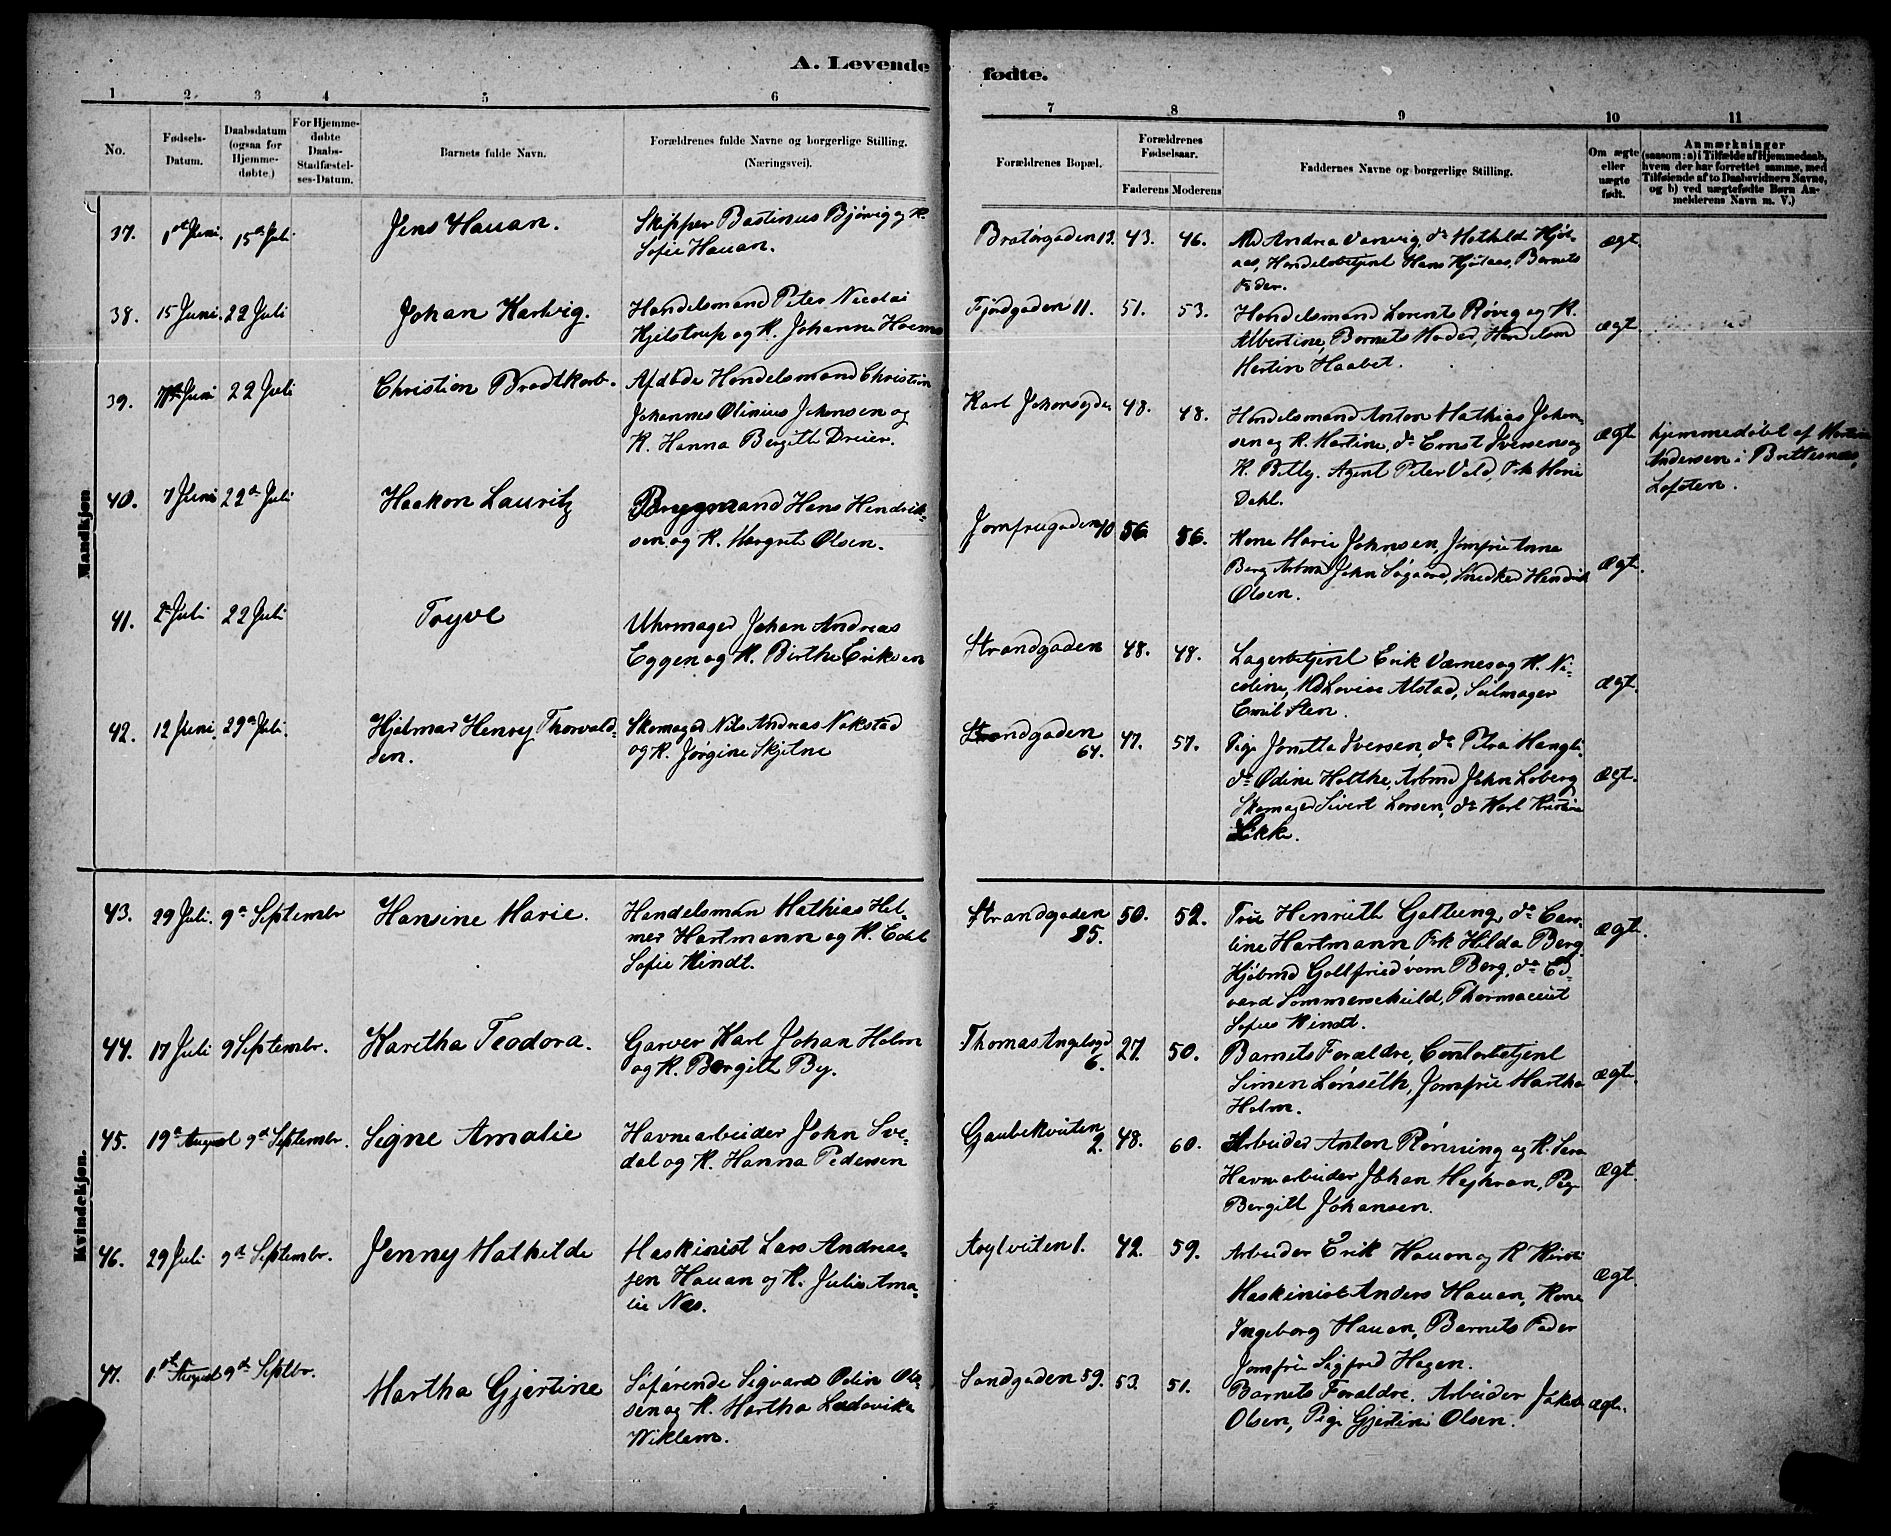 A. Levende fødte.
1 2 3 4 5 6 7 8 9 10 11
No.
Fødsels-
Datum.
Daabsdatum
(ogsaa for
Hjemme-
døbte.)
For Hjemme-
døbte
Daabs-
Stadfæstel-
ses-Datum.
Barnets fulde Navn.
Forældrenes fulde Navne og borgerlige Stilling.
(Næringsvei).
Forældrenes Bopæl.
Forældrenes
Fødselsaar.
Faderens Moderens
Faddernes Navne og borgerlige Stilling.
Om ægte
eller
uægte
født.
Anmærkninger
(saasom: a) i Tilfælde af Hjemmedaab,
hvem der har forrettet samme, med
Tilføiende af to Daabsvidners Navne,
og b) ved uægtefødte Børn An-
melderens Navn m. V.)
Mandkjøn
37. 1st Juni 15de Juli Jens Hauan.
Skipper Bastinus Bjørvig og K.
Sofie Hauan.
Bratørgaden 13. 43. 46.
Md Andrea Vansvig, do Mathilde Hjøl-
aas, Handelsbetjent Hans Hjølaas, Barnets
Fader.
ægt.
38. 15 Juni. 22 Juli Johan Hartvig.
Handelsmand Peter Nicolai
Kjelstrup og K. Johanne
Fjordgaden 11. 51. 53.
Handelsmand Lorents Røvig og K.
Albertine, Barnets Moder, Handelsm
Martin Haabet.
ægt.
39. Juni 22 Juli Christian Bradtkorb.
Afdøde Handelsmand Christian
Johannes Olinius Johnsen og
K. Hanna Bergitte Dreier.
Karl Johansgden 48. 48.
Handelsmand Anton Mathias Johan-
sen og K. Martine, do Ernst Iversen og
K. Betty. Agent Peter Vold, Frk Marie
Dahl.
ægt
hjemmedøbt af
Andersen i Brettesnæs,
Lofoten.
40. 7 Juni 22de Juli Haakon Lauritz
Bryggmand Hans Hendrik-
sen og K. Margrete Olsen.
Jomfrugaden 10 56. 56.
Kone Marie Johnsen, Jomfru Anna
Berg, Arbmd John Søgaard, Snedker Hendrik
Olsen.
ægt.
41. 2de Juli 22 Juli Tryve
Uhrmager Johan Andreas
Eggen og K. Birthe Eriksen
Strandgaden 48. 48.
Lagerbetjent Erik Værnes og K. Ni-
coline, Md Lovise Alstad, Seilmager
Emil Sten.
ægt.
42. 12 Juni. 29de Juli. Hjalmar Henry Thorvald-
sen.
Skomager Nils Andreas Nokstad
og K. Jørgine Skjetne
Strandgaden
64. 47. 57.
Pige Jonetta Iversen, do Petra
do Odine Holthe, Arbmd John Loberg
Skomager Sivert Larsen, do Karl Kristian
Løkke.
ægt.
Kvindekjøn.
43. 29 Juli. 9de Septembr Hansine Marie.
Handelsman Mathias Hel-
mer Hartmann og K. Edel
Sofie Hindt.
Strandgaden
35. 50. 52.
Frue Henriette Gellung, do Caro-
line Hartmann Frk Hilda Berg
Kjøbmd Gottfried vom Berg, do Ed-
vard Sommerschield, Pharmaceut
Sofus Hindt.
ægt.
44. 17 Juli 9 Septembr. Haretha Teodora.
Garver Karl Johan Holm
og K. Bergitte By.
Thomas Angelsgd
6. 27. 50.
Barnets Forældre, Contorbetjent
Simen Lønseth, Jomfru Martha
Holm.
ægt.
45. 19de August 9de Septembr. Signe Amalie
Havnearbeider John Sve-
dal og K. Hanna Pedersen
Gaubekveiten
2. 48. 60.
Arbeider Anton Rønning og K. Sara
Havnearbeider Johan Mejhran, Pige
Bergitt Johansen.
ægt.
46. 29 Juli 9de Septembr. Jenny Mathilde
Maskinist Lars Andreas-
sen Hauan og K. Julie Ama-
lie Næs.
1. 42. 59.
Arbeider Erik Hauan og K
Maskinist Anders Hauan, Kone
Ingeborg Hauan, Barnets Fader
Jomfru Sigfred Hagen.
ægt.
47. 1st August 9de Septbr. Martha Gjertine
Søfarende Sigvard Odin Ol-
sen og K. Martha Ludovika
Wiklem.
Sandgaden 59. 53. 51.
Barnets Forældre. Arbeider Jakob
Olsen, Pige Gjertine Olsen.
ægt.